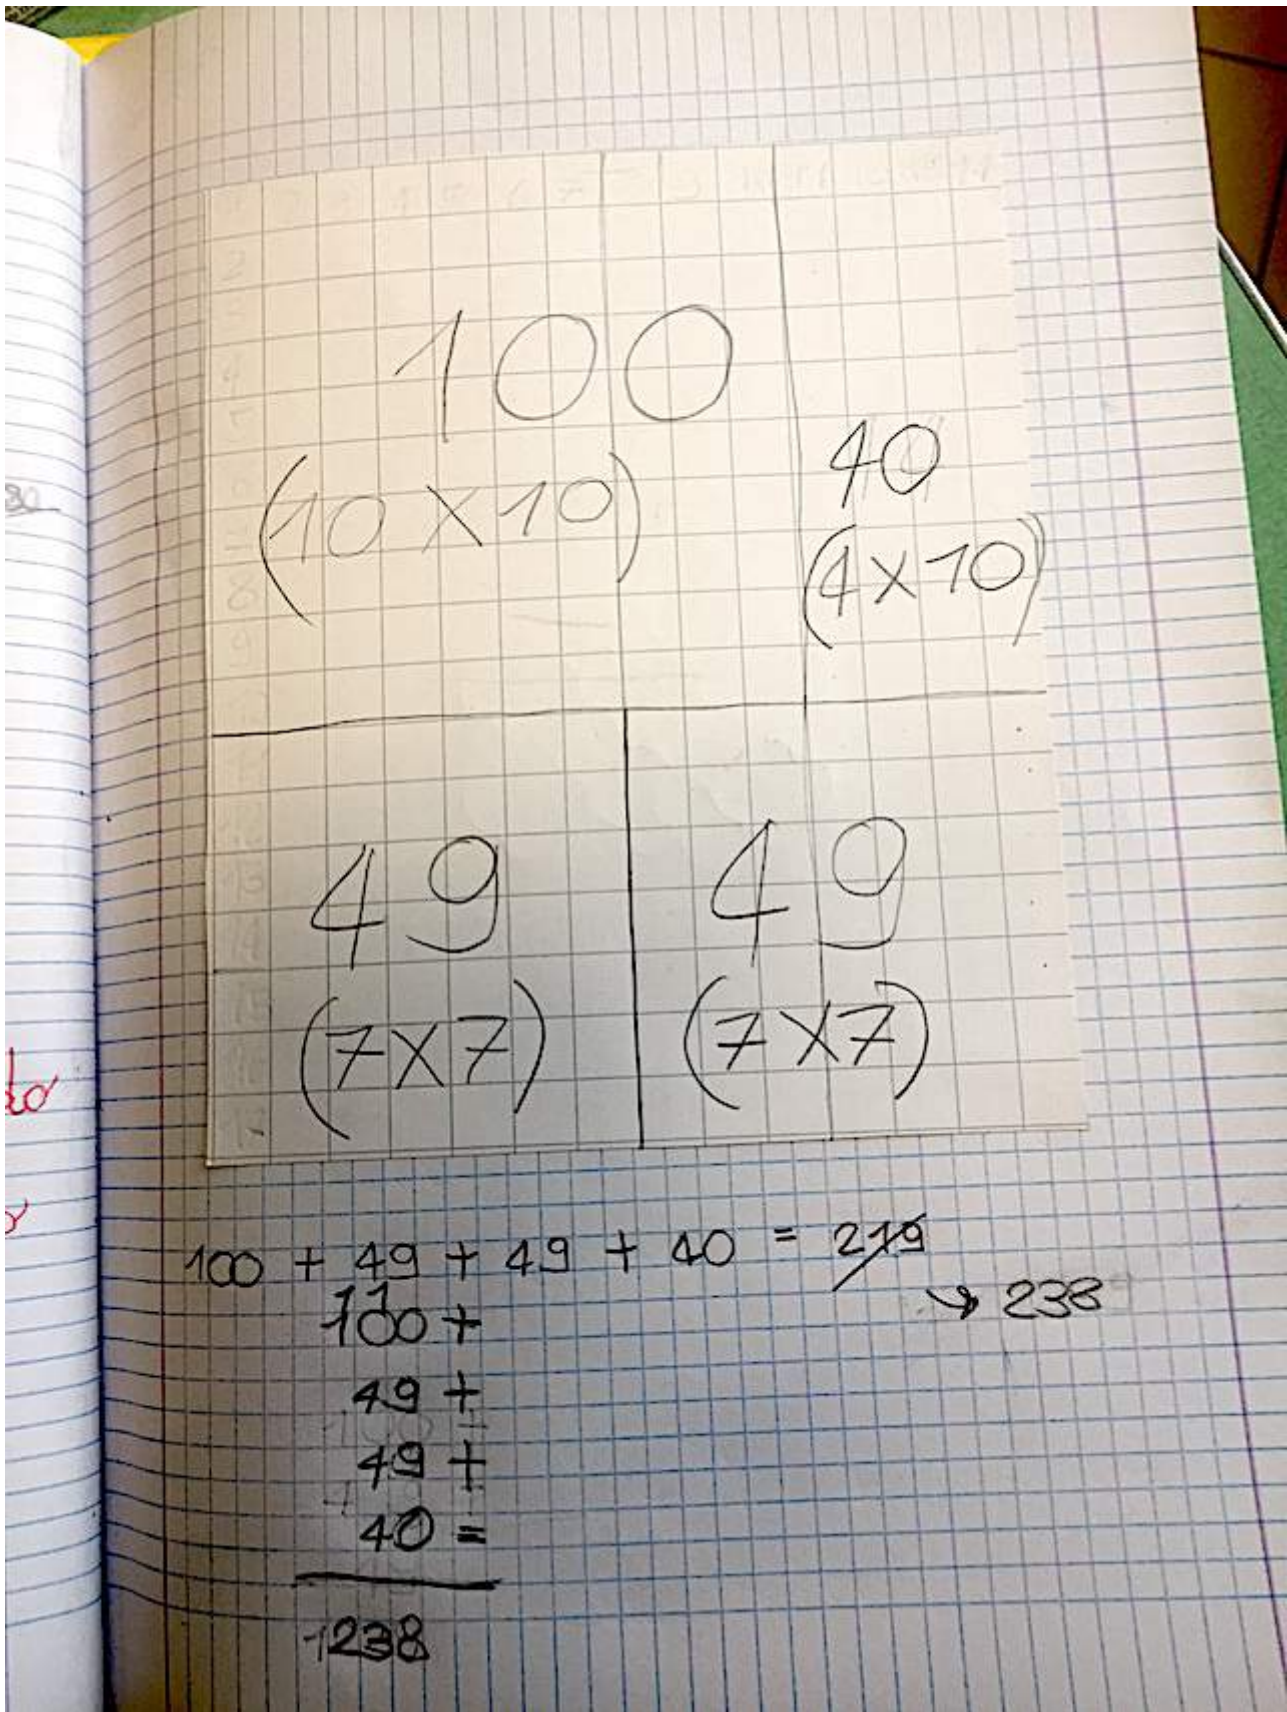 100
(10 X 10)
40
(4 X 10)
49
(7X7)
49
(7X7)
100 + 49 + 49 + 40 = 219
→ 238
11
100 +
49 +
49 +
40 =
238